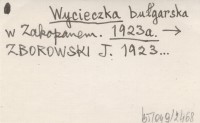 Wycieczka bułgarska
w Zakopanem. 1923a. →
ZBOROWSKI J. 1923...